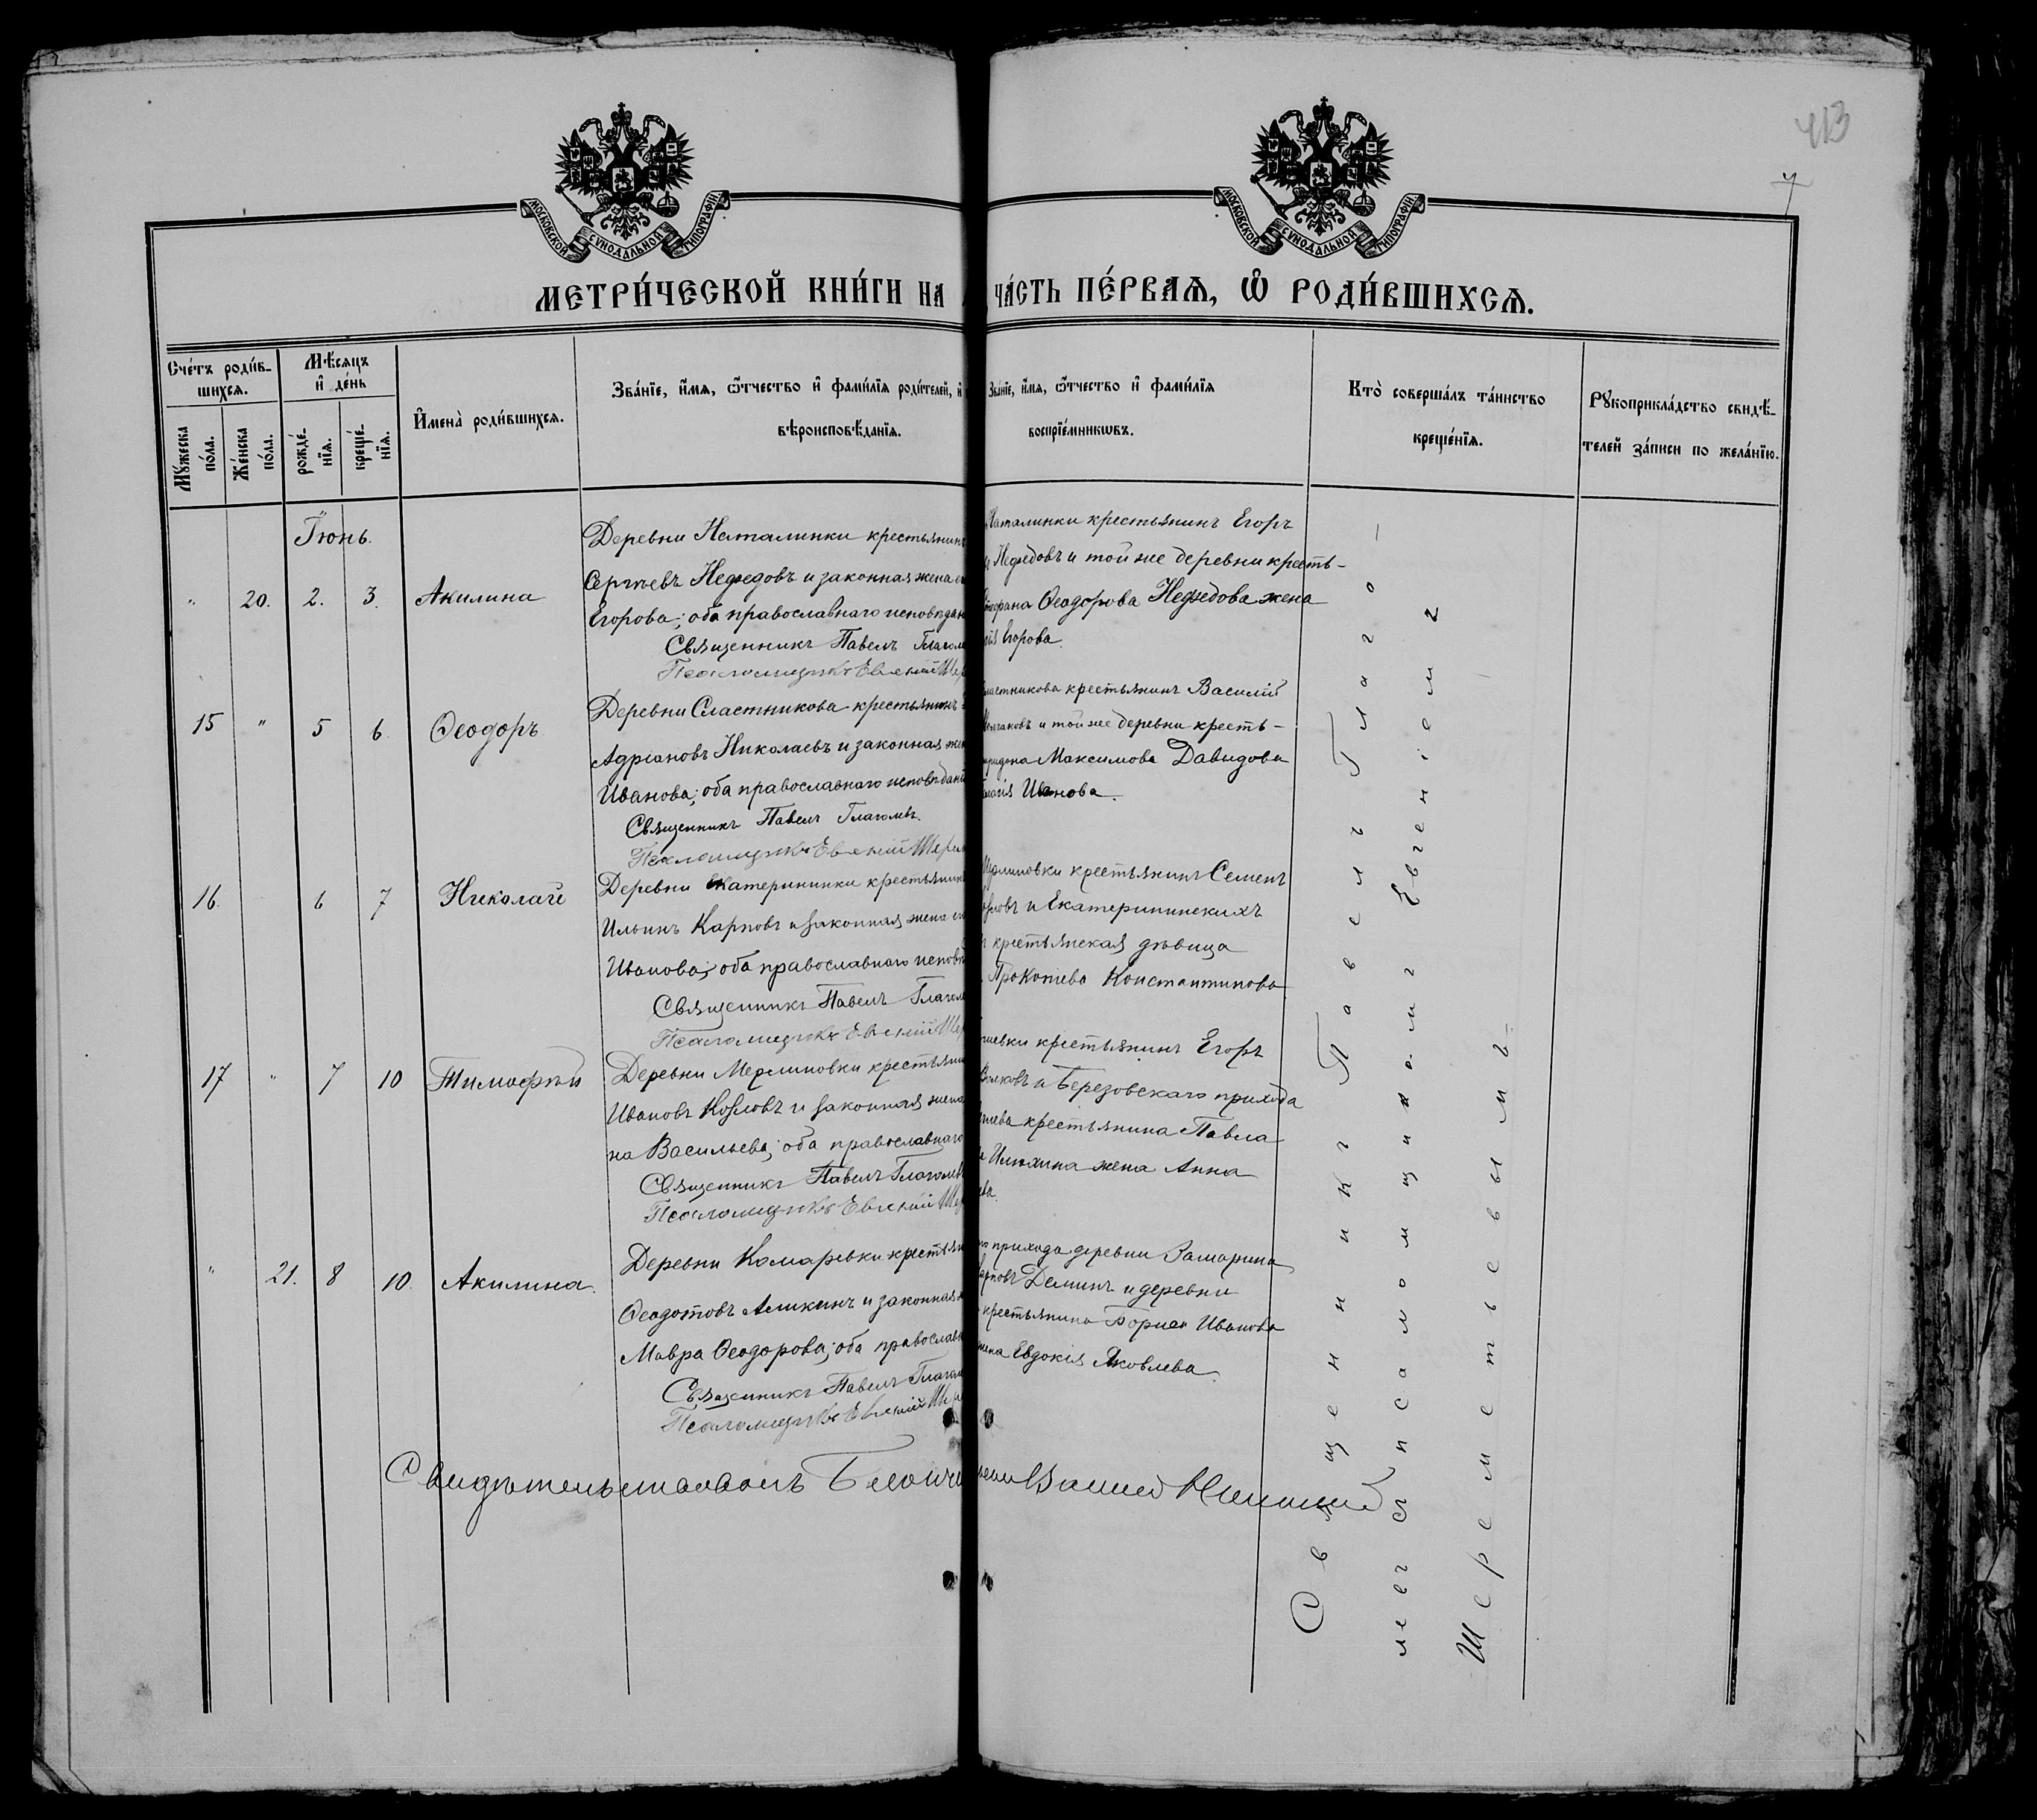 413
7
МОСКОВСКОЙ СУНОДАЛЬНОЙ ТИПОГРАФІИ.
МОСКОВСКОЙ СУНОДАЛЬНОЙ ТИПОГРАФІИ.
МЕТРИ́ЧЕСКОЙ КНИ́ГИ НА
ЧА́СТЬ ПЕ́РВАѦ, Ѽ РОДИ́ВШИХСѦ.
Сче́тъ роди́в-
шихсѧ.
Мꙋ́жеска по́ла.
Же́нска по́ла.
Мѣ́сѧцъ
и҆ де́нь
рожде́-
нїѧ.
креще́-
нїѧ.
И҆мена̀ роди́вшихсѧ.
Зва́нїе, и҆́мѧ, ѻ҆́тчество и҆ фами́лїѧ роди́телей, и҆
вѣроисповѣ́данїѧ.
Зва́нїе, и҆́мѧ, ѻ҆́тчество и҆ фами́лїѧ
воспрїе́мникѡвъ.
Кто̀ соверша́лъ та́инство
креще́нїѧ.
Рꙋкоприкла́дство свидѣ́-
телей за́писи по жела́нїю.
Іюнь.
" 20. 2. 3. Акилина
Деревни Наталинки крестьянинъ
Сергѣевъ Недѣдовъ и законная жена
Егорова; оба православнаго исповѣдан
Священникъ Павелъ Глагол
Псаломщикъ Евгеній Шер
Наталинки крестьянинъ Егоръ
Недѣдовъ и той же деревни кресть-
Ѳеодорова Недѣдова жена
Егорова.
15 " 5 6. Ѳеодоръ
Деревни Сластникова крестьянинъ
Адріановъ Николаевъ и законная жен
Иванова; оба православнаго исповѣдані
Священникъ Павелъ Глаголевъ.
Псаломщикъ Евгеній Шерем
Сластникова крестьянинъ Василій
и той же деревни кресть-
Максимова Давыдова
Иванова.
16. 6 7 Николай
Деревни Екатерининки крестьянинъ
Ильинъ Карповъ и законная жена
Иванова; оба православнаго исповѣ
Священникъ Павелъ Глагол
Псаломщикъ Евгеній Шер
Мерлиновки крестьянинъ Семенъ
и Екатерининскихъ
крестьянская дѣвица
Прокопіева Константинова
17 " 7 10 Тимоѳей
Деревни Мерлиновки крестьянин
Ивановъ Козловъ и законная жена
на Васильева; оба православнаго
Священникъ Павелъ Глаголев
Псаломщикъ Евгеній Шер
крестьянинъ Егоръ
Волковъ и Березовскаго прихода
крестьянина Павла
Илюхина жена Анна
ева.
" 21. 8 10. Акилина.
Деревни Комаревки крестьян
Ѳеодотовъ Алимкинъ и законная
Мавра Ѳеодорова; оба православн
Священникъ Павелъ Глагол
Псаломщикъ Евгеній Шер
прихода деревни Замарина
Карповъ Деминъ и деревни
крестьянина Бориса Иванова
жена Евдокія Яковлева.
Священникъ Павелъ Глаго-
левъ съ псаломщикомъ Евгеніемъ
Шереметьевымъ.
Свидѣтельствовалъ Благочи